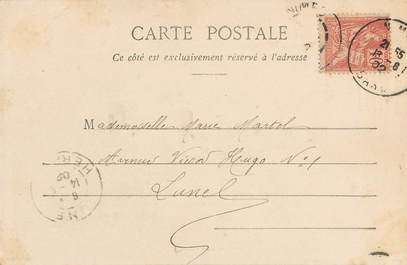 CARTE POSTALE
Ce côté est exclusivement réservé à l'adresse
Mademoiselle Marie Martel
Avenue Victor Hugo N° 1
Lunel